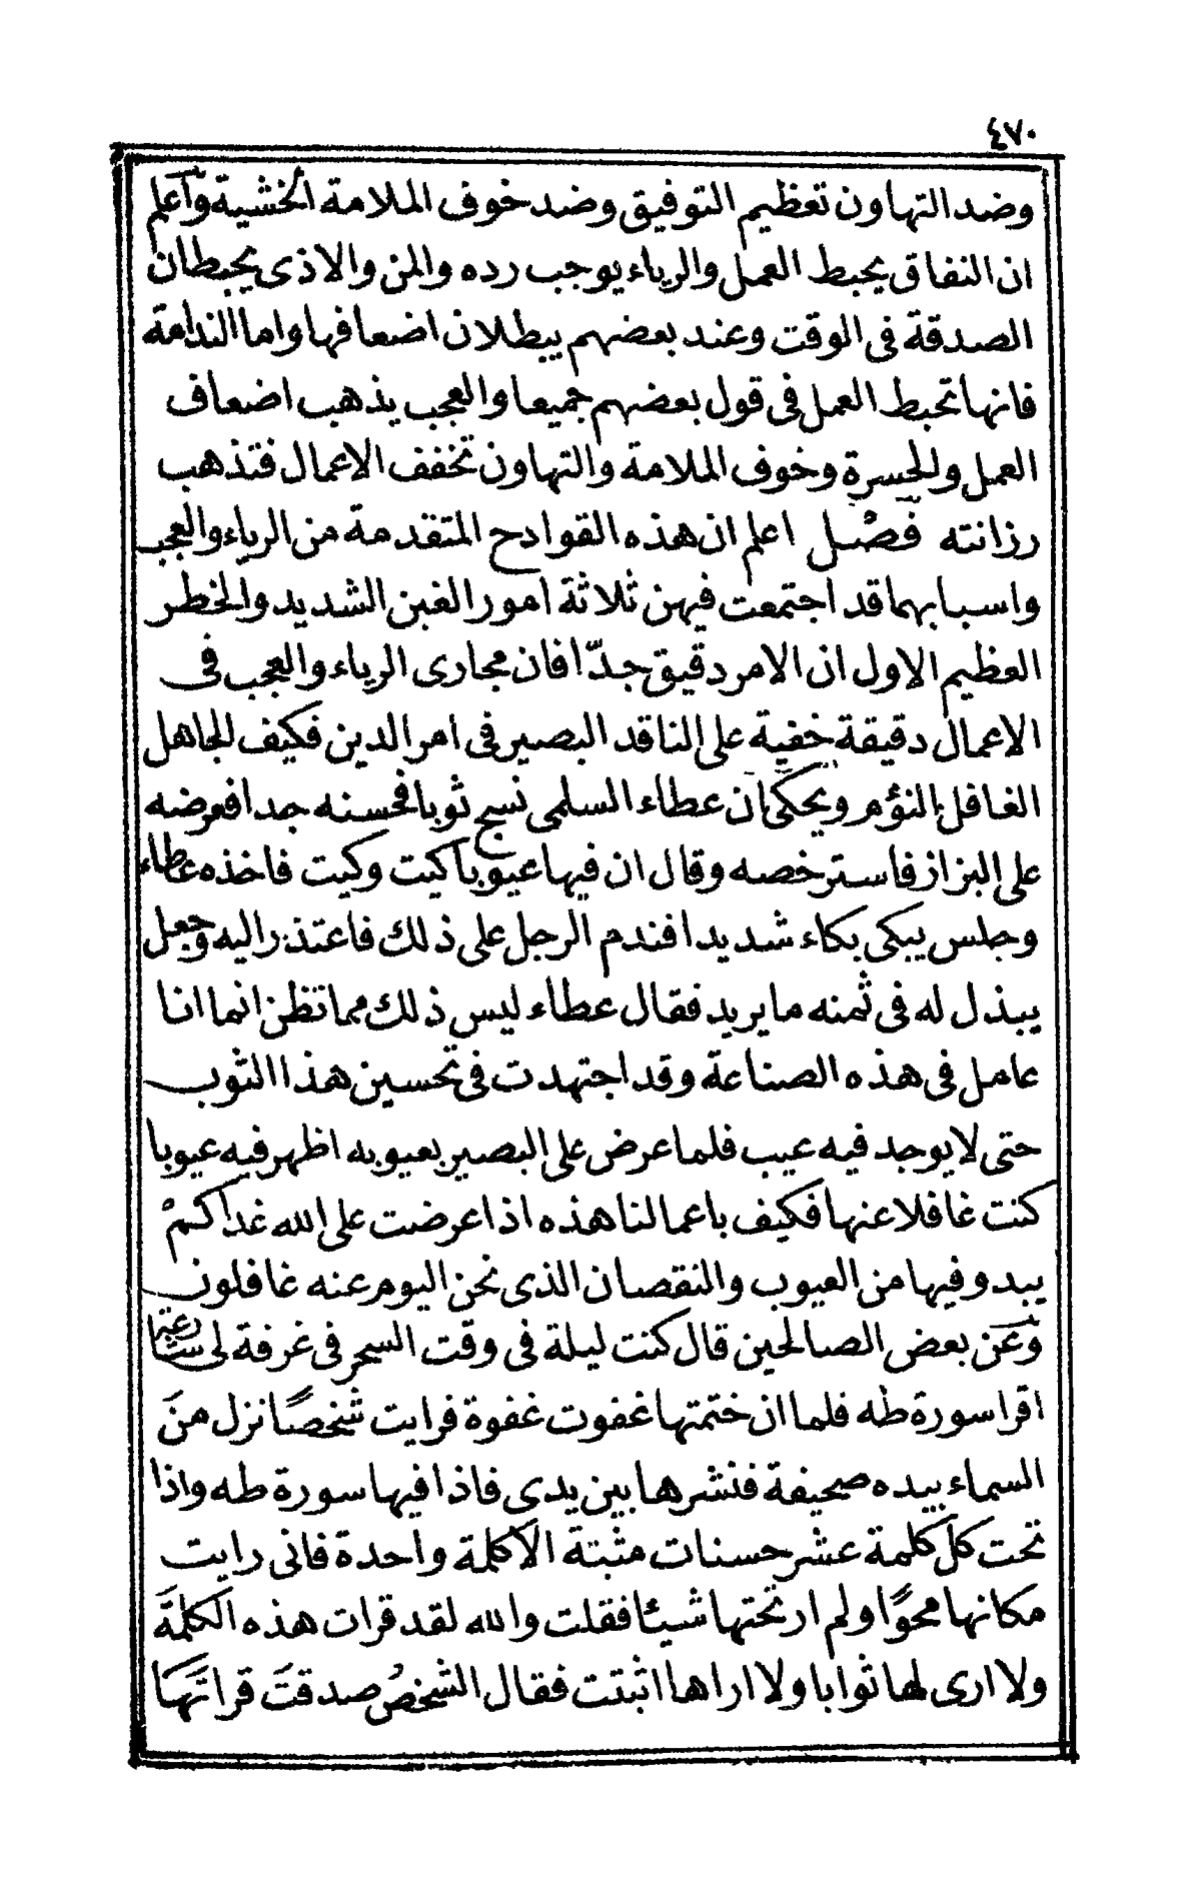 ٤٧٠
وضد التهاون تعظيم التوفيق وضد خوف الملامة الخشية واعلم
ان النفاق يحبط العمل والرياء يوجب رده والمن والاذى يحبطان
الصدقة فى الوقت وعند بعضهم يبطلان اضعافها واما الندامة
فانها تحبط العمل فى قول بعضهم جميعا والعجب يذهب اضعاف
العمل والحسرة وخوف الملامة والتهاون تخفف الاعمال فتذهب
رزانته فصل اعلم ان هذه القوادح المتقدمة من الرياء والعجب
واسبابهما قد اجتمعت فيهن ثلاثة امور الغبن الشديد والخطر
العظيم الاول ان الامر دقيق جدّا فان مجارى الرياء والعجب فى
الاعمال دقيقة خفية على الناقد البصير فى امر الدين فكيف للجاهل
الغافل النؤم ويحكى ان عطاء السلمى نسج ثوبا فحسنه جدا فعرضه
على البزاز فاسترخصه وقال ان فيها عيوبا كيت وكيت فاخذه عطاء
وجلس يبكى بكاء شديدا فندم الرجل على ذلك فاعتذر اليه وجعل
يبذل له فى ثمنه ما يريد فقال عطاء ليس ذلك مما تظن انما انا
عامل فى هذه الصناعة وقد اجتهدت فى تحسين هذا الثوب
حتى لا يوجد فيه عيب فلما عرض على البصير بعيوبه اظهر فيه عيوبا
كنت غافلا عنها فكيف باعمالنا هذه اذا عرضت على الله غدا كمْ
يبدو فيها من العيوب والنقصان الذى نحن اليوم عنه غافلون
وعن بعض الصالحين قال كنت ليلة فى وقت السحر فى غرفة لى شارعة
اقرا سورة طه فلما ان ختمتها غفوت غفوة فرايت شخصًا نزل منَ
السماء بيده صحيفة فنشرها بين يدى فاذا فيها سورة طه واذا
تحت كل كلمة عشر حسنات مثبتة الا كلمة واحدة فانى رايت
مكانها محوًا ولم ار تحتها شيئا فقلت والله لقد قرات هذه الكلمةَ
ولا ارى لها ثوابا ولا اراها اثبتت فقال الشخصُ صدقتَ قراتَهَا